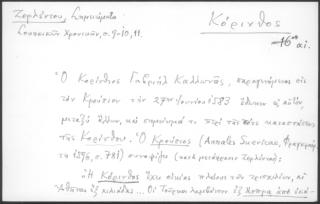 Ζερλέντου, Σημειώματα
Εσυακικῶν Χρονικῶν, σ. 9-10, 11.
Κόρινθος
16 αἰ.
Ὁ Κορίνθιος Γαβριὴλ Καλλωνᾶς, παραγενόμενος εἰς
τὸν Κρούσιον τὴν 27ην Ἰουνίου 1583 ἔδωκεν εἰς αὐτόν,
μεταξὺ ἄλλων, καὶ σημείωμα τι περὶ τῆς τότε καταστάσεως
τῆς Κορίνθου. Ὁ Κρούσιος (Annales Suevicae, Φραγκφούρτη
1596, σ. 781) συνοψίζει (κατὰ μετάφρασιν Ζερλέντου):
«Ἡ Κόρινθος ἔχει οἰκίας πλείους τῶν τρισχιλίων, αἱ
Ἀθῆναι ἓξ χιλιάδας... Οἱ Τοῦρκοι λαμβάνουν ἓξ